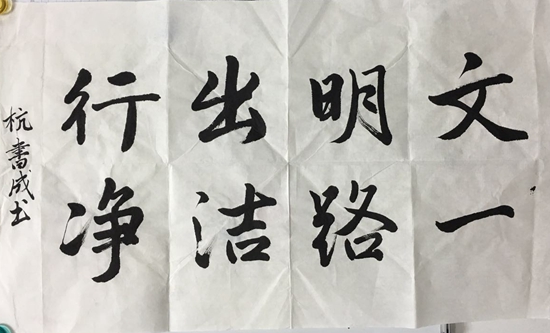 文明出行
一路洁净
杭書成书